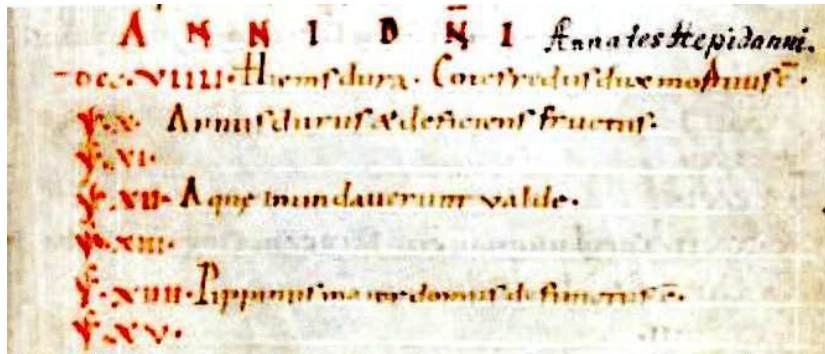 ANNI DN̄I Annales Hepidanni.
DCC·VIIII· Hiems dura. Cotefredus dux mortuus ē.
X. Annus durus & deficiens fructus.
XI.
XII. Aquę inundauerunt valde.
XIII.
XIIII. Pippinus maior domus defunctus ē.
XV.